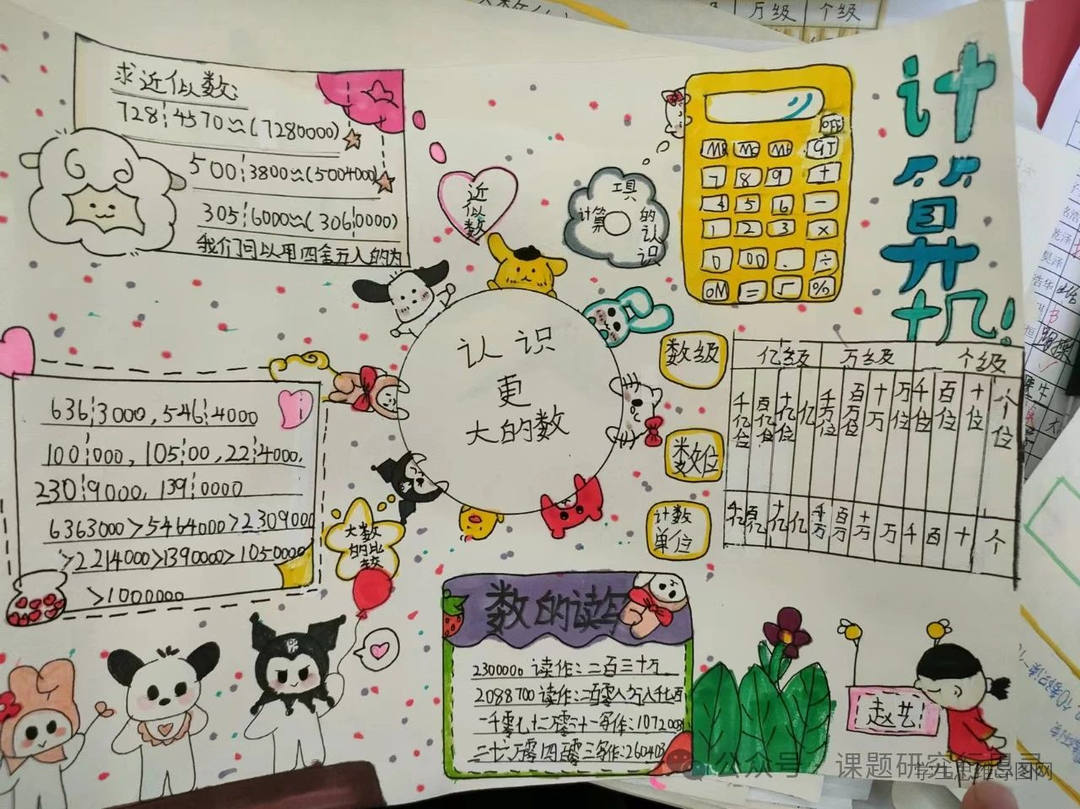 万级 个级
求近似数:
728¦4570≈(7280000)
500¦3800≈(5004000)
305¦6000≈(306¦0000)
我们可以用四舍五入的方
近似数
计算工具的认识
OFF
GT
7 8 9 +
4 5 6 -
1 2 3 ×
0 00 . ÷
ON = %
计算机!
认识
更
大的数
数级
数位
计数单位
亿级 万级 个级
千亿位 百亿位 十亿位 亿 千万位 百万位 十万 万位 千位 百位 十位 个位
千亿 百亿 十亿 亿 千万 百万 十万 万 千 百 十 个
636¦3000, 546¦4000
100¦000, 105¦00, 22¦4000,
230¦9000, 139¦0000
6363000>5464000>2309000
>2214000>1390000>1050000
>1000000
大数的比较
数的读写
2300000 读作:二百三十万
2088700 读作:二百零八万八千七百
一千零七十二万零六十一 写作:107200
二十六万零四百零三 写作:260403
赵艺
公众号·课题研究
学生思维意图网